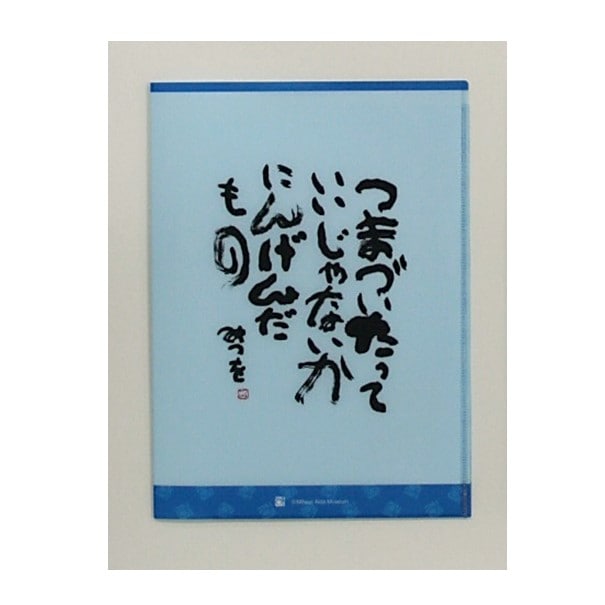 つまづいたって
いいじゃないか
にんげんだ
もの
みつを
©Mitsuo Aida Museum